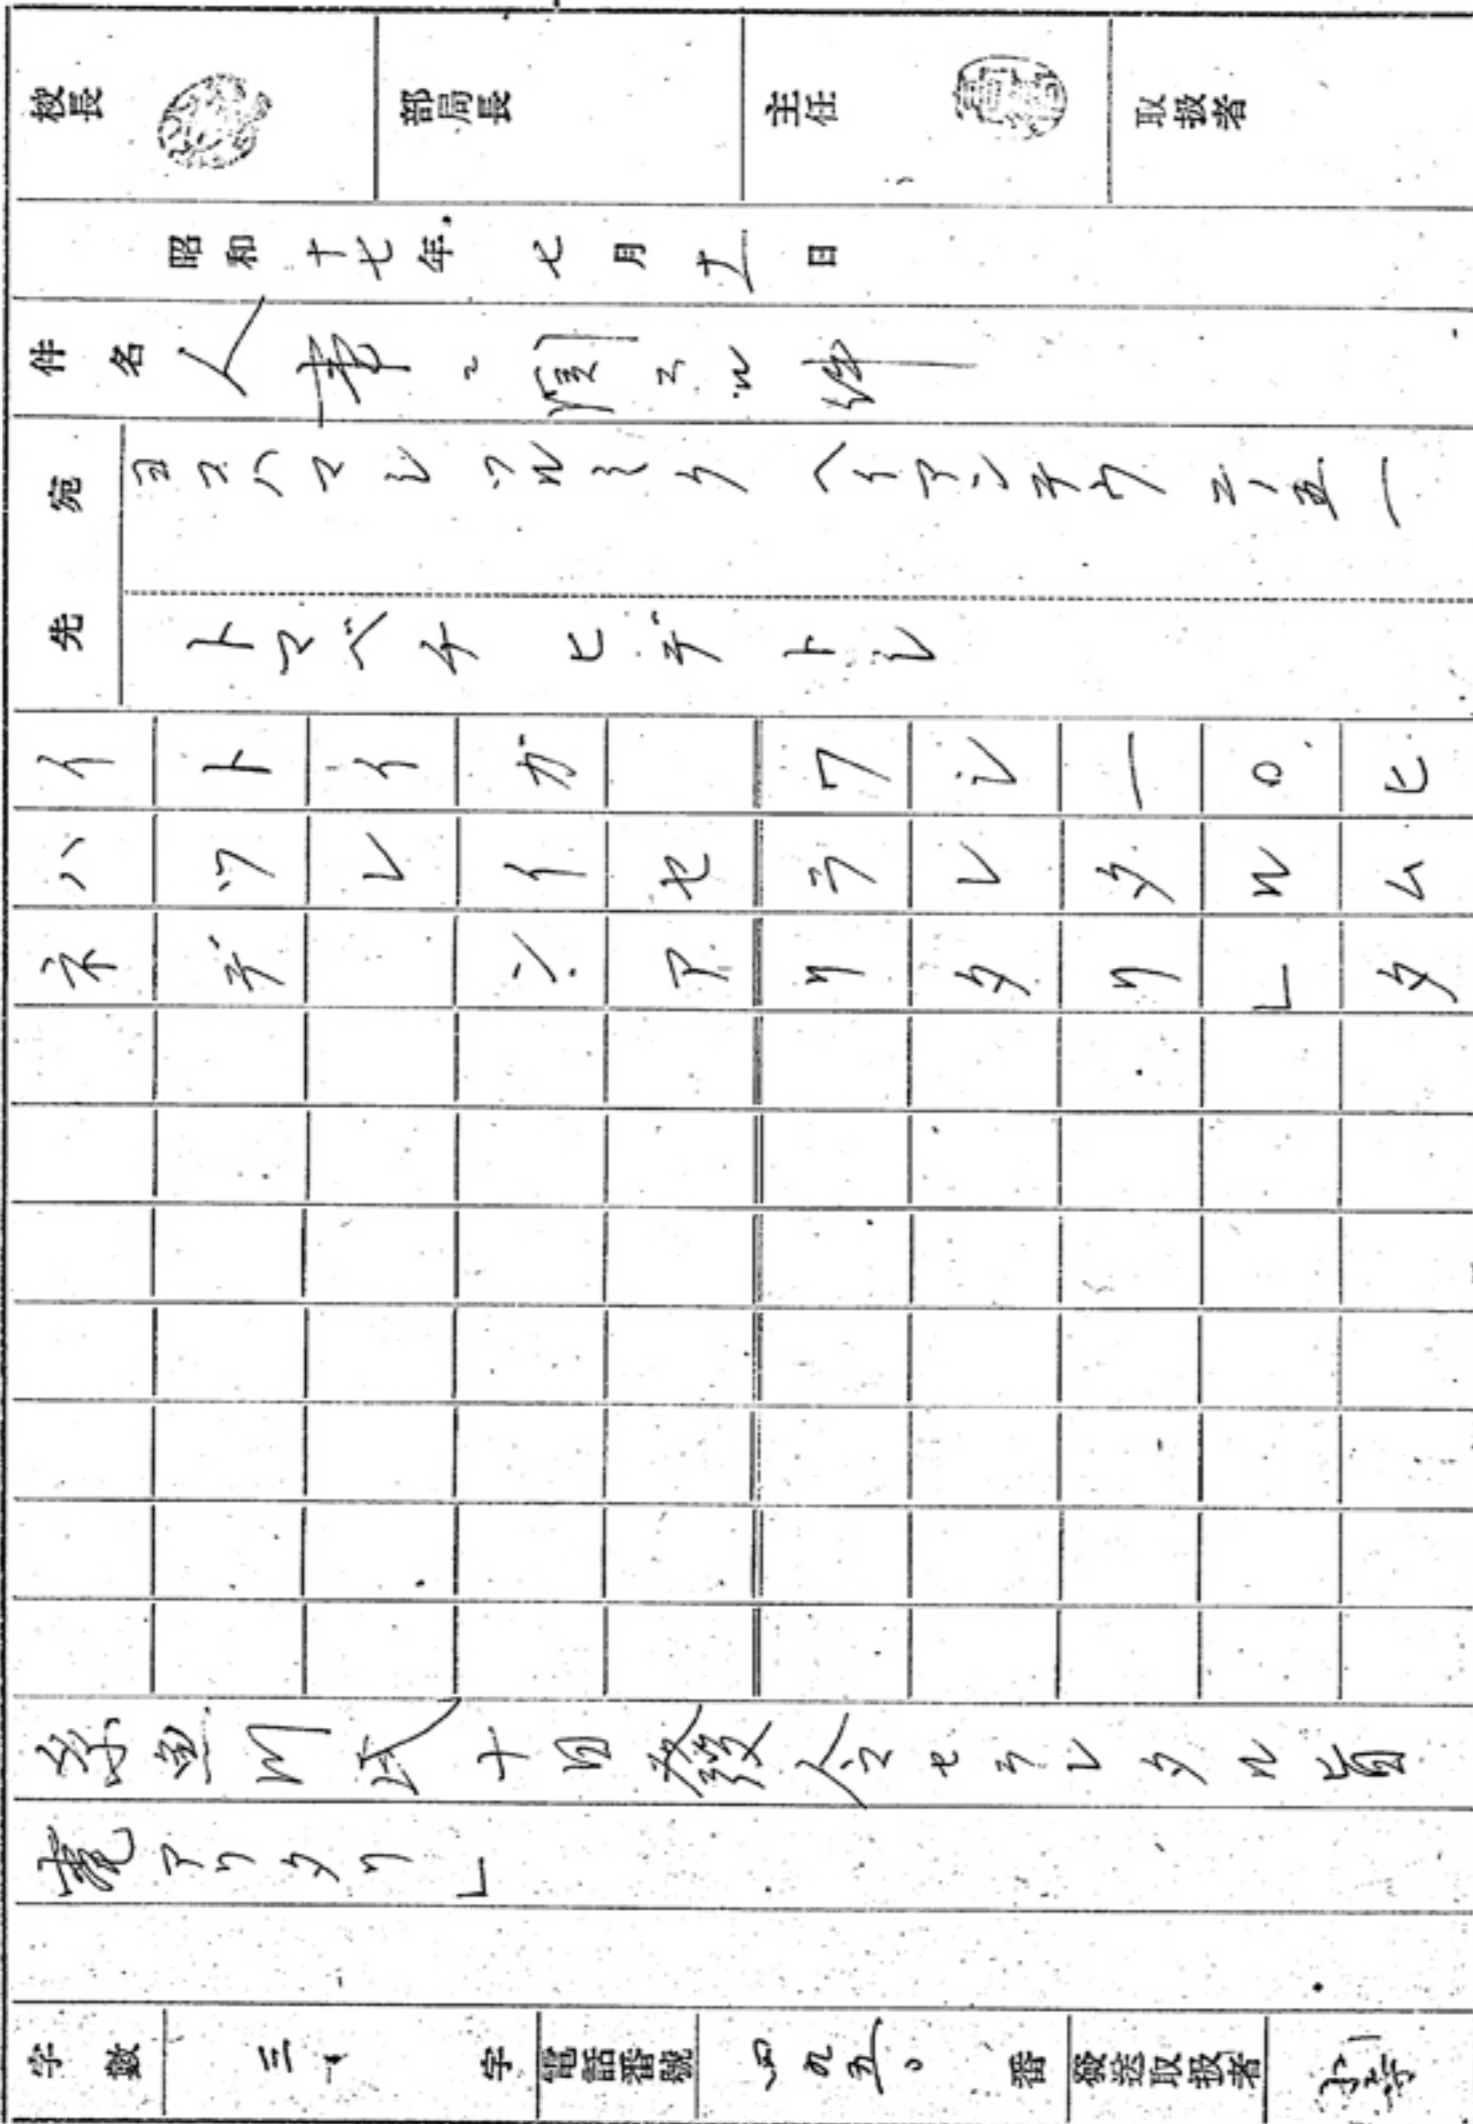 校長 部局長 主任 取扱者
昭和十七年七月十一日
件名 人事ニ関スル件
宛先 ヨコハマシツルミク ヘイアンチウ 二ノ五一
トマベチ ヒデトシ
イトイガ ワシ一〇ヒ
ハツレイセラレタルム
ネデ ンアリタリ」タ
糸魚川氏十日發令セラレタル旨
電アリタリ」
字數 字 電話番號 四九五〇番 發送取扱者